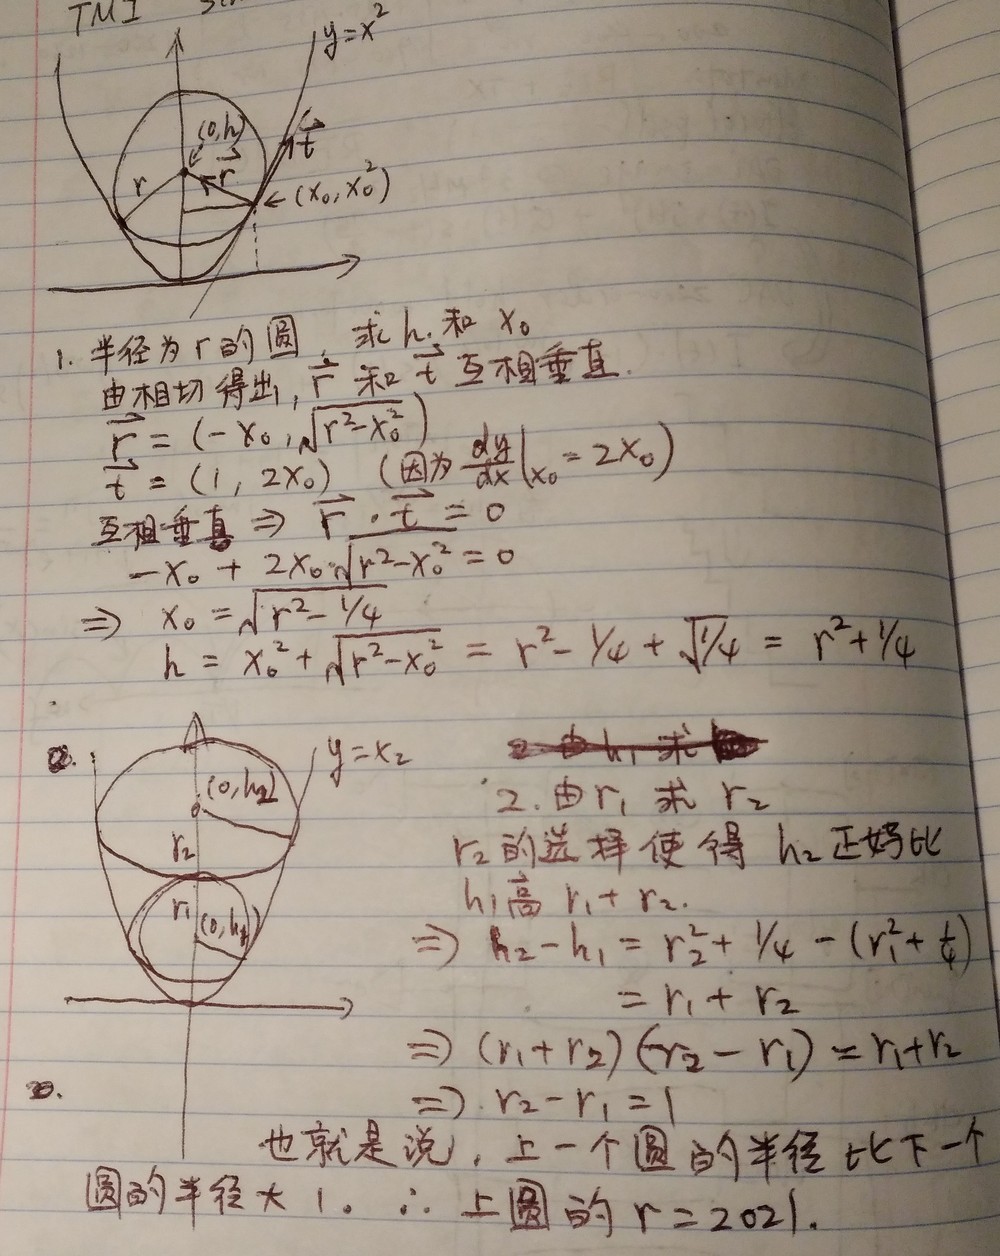 TMI
y=x²
(0,h)
t⃗
r
r⃗
(x₀, x₀²)
1. 半径为 r 的圆, 求 h 和 x₀
由相切得出, r⃗ 和 t⃗ 互相垂直.
r⃗ = (-x₀, √(r²-x₀²))
t⃗ = (1, 2x₀) (因为 dy/dx|x₀ = 2x₀)
互相垂直 ⇒ r⃗ · t⃗ = 0
-x₀ + 2x₀·√(r²-x₀²) = 0
⇒ x₀ = √(r²-1/4)
h = x₀² + √(r²-x₀²) = r²-1/4 + √(1/4) = r²+1/4
y=x₂
(0,h₂)
r₂
r₁
(0,h₁)
2. 由 r₁ 求 r₂
r₂ 的选择使得 h₂ 正好比
h₁ 高 r₁+r₂.
⇒ h₂-h₁ = r₂²+1/4-(r₁²+1/4)
= r₁+r₂
⇒ (r₁+r₂)(r₂-r₁) = r₁+r₂
⇒ r₂-r₁=1
也就是说, 上一个圆的半径比下一个
圆的半径大 1. ∴ 上圆的 r=2021.